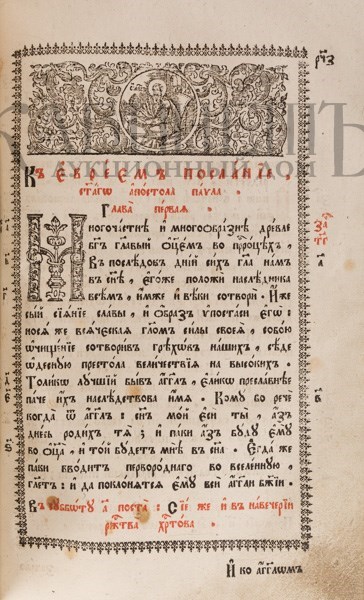 р҃чз
КАБИНЕТЪ
АУКЦИОННЫЙ ДОМ
Къ єврє́ємъ посла́нїе,
ст҃а́гѡ а҆пⷭ҇тола па́ѵла.
Глава̀ пе́рваѧ.
Многоча́стнѣ и҆ многоѡбра́знѣ дре́влє
бг҃ъ гл҃авый ѻ҆ц҃є́мъ во прⷪ҇ро́цѣхъ,
въ послѣ́докъ дні́й си́хъ гл҃а на́мъ
въ сн҃ѣ, є҆го́же положѝ наслѣ́дника
всѣ́мъ, и҆́мже и҆ вѣ́ки сотворѝ. И҆́же
сы́й сїѧ́нїе сла́вы, и҆ ѡ҆́бразъ ѵ҆поста́си є҆гѡ̀:
носѧ́ же всѧ́чєскаѧ гл҃го́мъ си́лы своеѧ̀, собо́ю
ѡ҆чище́нїе сотвори́въ грѣхѡ́въ на́шихъ, сѣ́де
ѡ҆десну́ю престо́ла вели́чествїѧ на высо́кихъ.
Толи́кѡ лꙋ́чшїй бы́въ а҆́гг҃лъ, є҆ли́кѡ пресла́внѣе
па́че и҆́хъ наслѣ́дствова и҆́мѧ. Комꙋ́ бо речѐ
когда̀ ѿ а҆́гг҃лъ: сн҃ъ мо́й є҆сѝ ты̀, а҆́зъ
дне́сь роди́хъ тѧ̀; и҆ па́ки а҆́зъ бꙋ́дꙋ є҆мꙋ̀
во ѻ҆ц҃а̀, и҆ то́й бꙋ́детъ мнѣ̀ въ сн҃а. Е҆гда́ же
па́ки вво́дитъ перворо́днаго во вселе́ннꙋю,
гл҃етъ: и҆ да покло́нѧтсѧ є҆мꙋ̀ всѝ а҆́гг҃ли бж҃їи.
Въ сꙋббѡ́тꙋ а҃ поста̀: Сїе́ же и҆ въ навече́рїи
ржⷭ҇тва̀ хрⷭ҇то́ва.
И҆ ко а҆́гг҃лѡмъ